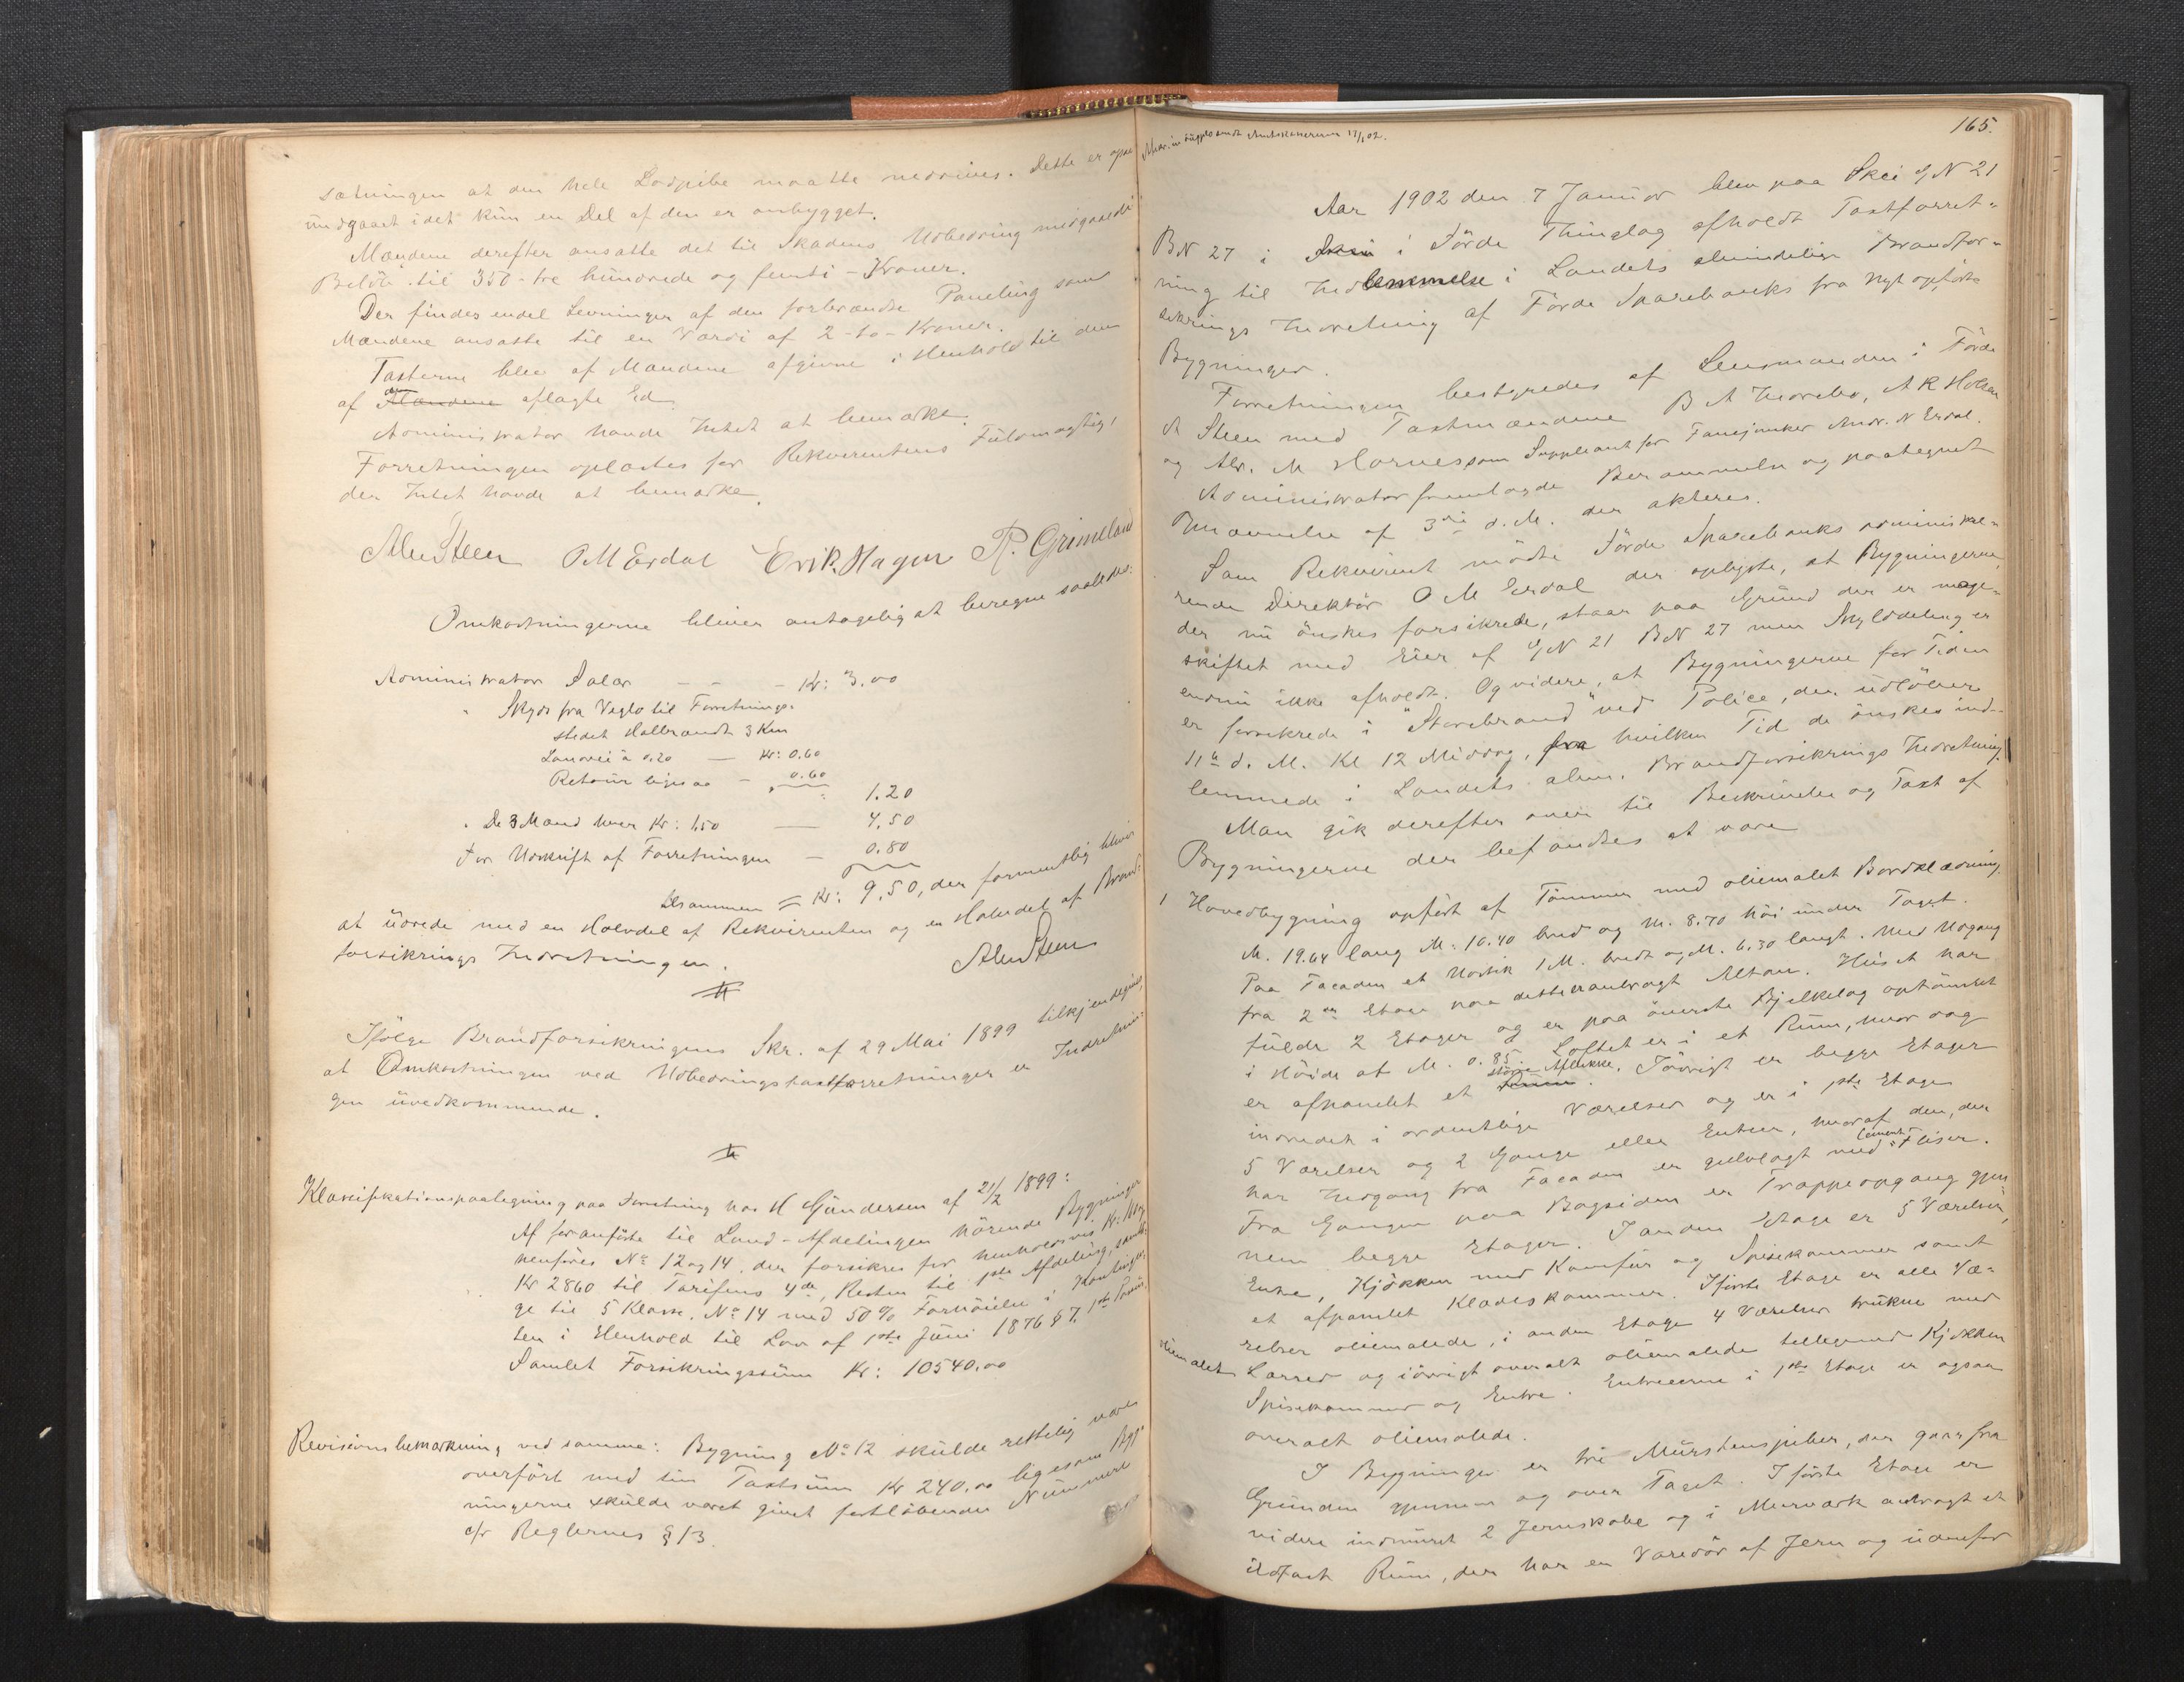 sætningen at den hele Lodpibe maatte nedrives. Dette er ogsaa
undgaaet idet kun en Del af den er ombygget.
Mændene derefter ansatte det til Skadens Udbedring medgaaede
Beløb til 350 - tre hundrede og femti - Kroner.
Der findes endel Levninger af den forbrændte Paneling som
Mændene ansatte til en Værdi af 2 - to - Kroner.
Taxterne blev af Mændene afgivne i Henhold til den
af Mændene aflagte Ed.
Administrator havde Intet at bemærke.
Forretningen oplæstes for Rekvirentens Fuldmægtig,
der Intet havde at bemærke.
Alex Steen O M Erdal Erik Hagen R. Grimeland
Omkostningerne bliver antagelig at beregne saaledes:
Administrator Salær - - - Kr: 3.00
" Skyds fra Veglo til Forretnings-
stedet Halbrandt 3 Km
Landvei à 0.20 — Kr: 0.60
Retour ligesaa - " 0.60
" 1.20
" De 3 Mænd hver Kr: 1.50 — 4.50
For Udskrift af Forretningen — 0.80
tilsammen = Kr: 9.50, der formentlig bliver
at udrede med en Halvdel af Rekvirenten og en Halvdel af Brand-
forsikrings Indretningen.
Alex Steen
Ifølge Brandforsikringens Skr. af 29 Mai 1899 tilkjendegives,
at Omkostningen ved Udbedringstaxtforretninger er Indretnin-
gen uvedkommende.
Klassifikationspaategning paa Forretning hos H Gundersen af 21/2 1899:
Af foranførte til Land-Afdelingen hørende Bygninger
henføres No 12 og 14, der forsikres for henholdsvis Kr.
Kr 2860 til Tarifens 4de, Resten til 1ste Afdeling, samt-
ge til 5 Klasse. No 14 med 50% Forhøielse i Kontingen-
ten i Henhold til Lov af 1ste Juni 1876 § 7, 1ste
Samlet Forsikringssum Kr: 10540.00
Revisionsbemærkning ved samme: Bygning No 12 skulde rettelig være
overført med sin Taxtsum Kr 240.00 ligesom Byg-
ningerne skulde været givet fortløbende Nummere
cfr Reglernes § 13.
165.
Aar 1902 den 7 Januar blev paa Skei G N 21
B N 27 i Skei i Førde Thinglag afholdt Taxtforret-
ning til Indlemmelse i Landets almindelige Brandfor-
sikrings Indretning af Førde Sparebanks fra Nyt opførte
Bygninger.
Forretningen bestyredes af Lensmanden i Førde
A Steen med Taxtmændene B A Indrebø, A R Holsen
og Alb. M Hornes som Suppleant for Fanejunker Andr. N Erdal.
Administrator fremlagde Berammelse og paategnet
Opnævnelse af 3die d. M. der akteres.
Som Rekvirent mødte Førde Sparebanks administre-
rende Direktør O M Erdal der oplyste, at Bygningerne,
der nu ønskes forsikrede, staar paa Grund der er mage-
skiftet med Eier af G N 21 B N 27 men Skylddeling er
endnu ikke afholdt. Og videre, at Bygningerne for Tiden
er forsikrede i "Storebrand" ved Police, der udløber
11te d. M. Kl 12 Middag, fra hvilken Tid de ønskes ind-
lemmede i Landets alm. Brandforsikrings Indretning.
Man gik derefter over til Beskrivelse og Taxt af
Bygningerne der befandtes at være
1 Hovedbygning opført af Tømmer med oliemalet Bordklædning,
M. 19.64 lang M: 10.40 bred og M. 8.70 høi under Taget.
Paa Facaden et Udstik 1 M. bredt og M. 6.30 langt. Med Udgang
fra 2den Etage paa dette er anbragt Altan. Huset har
fulde 2 Etager og er paa øverste Bjelkelag optømret
i Høide af M. 0.85. Loftet er i et Rum, hvor dog
er afpanelet et større Aflukke. Iøvrigt er begge Etager
indredet i ordentlige Værelser og er i 1ste Etage
5 Værelser og 2 Gange eller Entreer, hvoraf den, der
har Indgang fra Facaden er gulvlagt med Cement Fliser.
Fra Gangen paa Bagsiden er Trappeopgang gjen
nem begge Etager. I anden Etage er 5 Værelser,
Entre, Kjøkken med Komfur og Spisekammer samt
et afpanelet Klædeskammer. I første Etage er alle Væ-
relser oliemalede, i anden Etage 4 Værelser trukne med
oliemalet Lærred og iøvrigt overalt oliemalede tilligemed Kjøkken
Spisekammer og Entre. Entreerne i 1ste Etage er ogsaa
overalt oliemalede.
I Bygningen er tre Murstenspiber, der gaar fra
Grunden gjennem og over Taget. I første Etage er
videre indmuret 2 Jernskabe og i Murværk anbragt et
ildfast Rum, der har en Varedør af Jern og udenfor